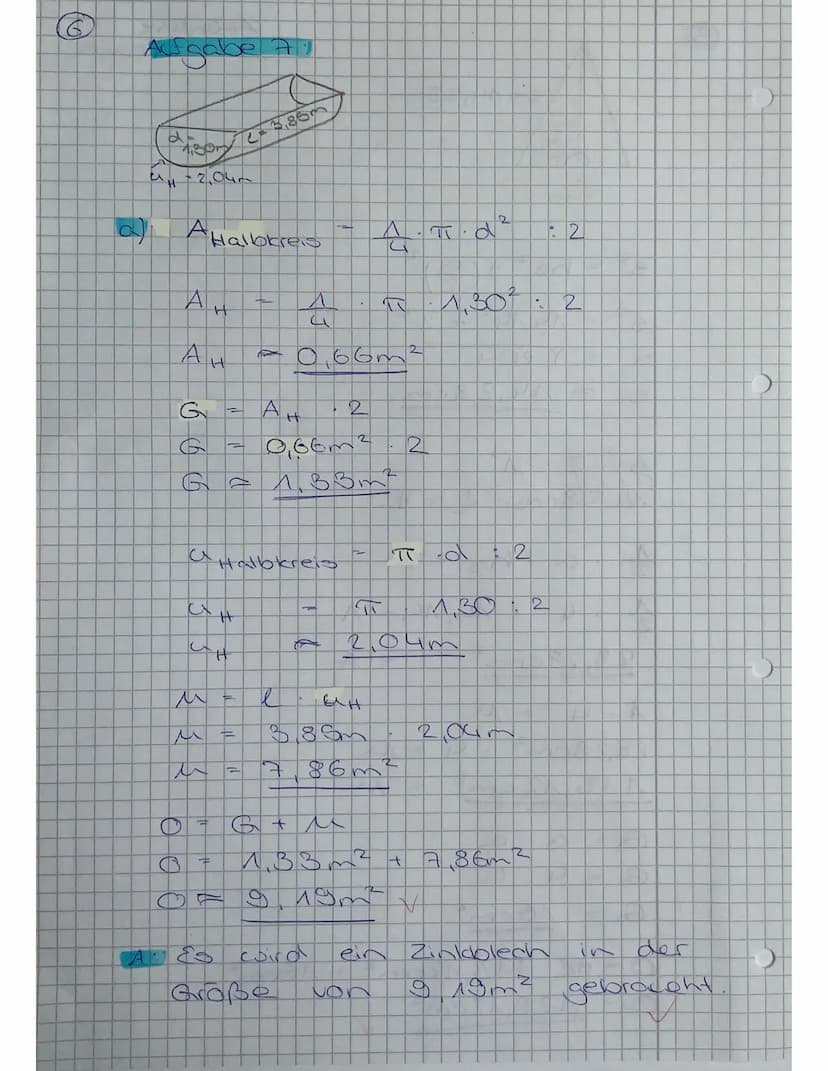 6
Aufgabe 7:
d = 1,30m
l = 3,85m
u_H = 2,04m
a) A_Halbkreis = 1/4 · π · d² : 2
A_H = 1/4 · π · 1,30² : 2
A_H ≈ 0,66m²
G = A_H · 2
G = 0,66m² · 2
G ≈ 1,33m²
u_Halbkreis = π · d : 2
u_H = π · 1,30 : 2
u_H ≈ 2,04m
M = l · u_H
M = 3,85m · 2,04m
M = 7,86m²
O = G + M
O = 1,33m² + 7,86m²
O ≈ 9,19m² ✓
A: Es wird ein Zinkblech in der
Größe von 9,19m² gebraucht. ✓